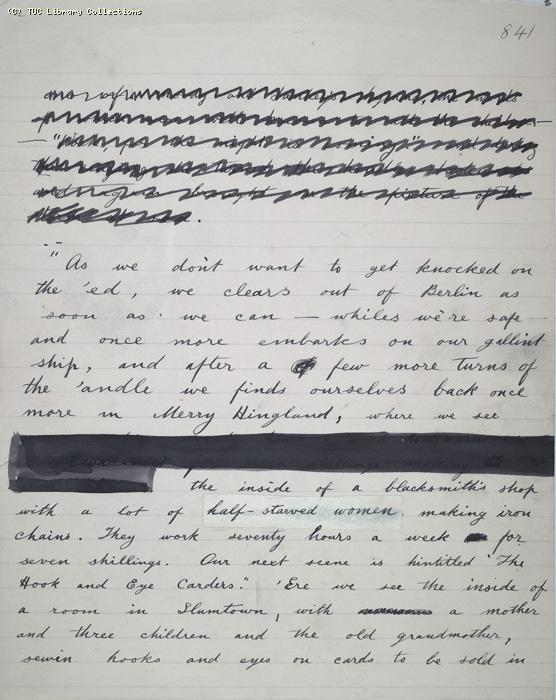 (C) TUC Library Collections
841
"As we don't want to get knocked on
the 'ed, we clears out of Berlin as
soon as we can – whiles we're safe –
and once more embarks on our gallint
ship, and after a few more turns of
the 'andle we finds ourselves back once
more in Merry Hingland, where we see
the inside of a blacksmith's shop
with a lot of half-starved women, making iron
chains. They work seventy hours a week for
seven shillings. Our next scene is hintitled "The
Hook and Eye Carders." 'Ere we see the inside of
a room in Slumtown, with a mother
and three children and the old grandmother,
sewin hooks and eyes on cards to be sold in